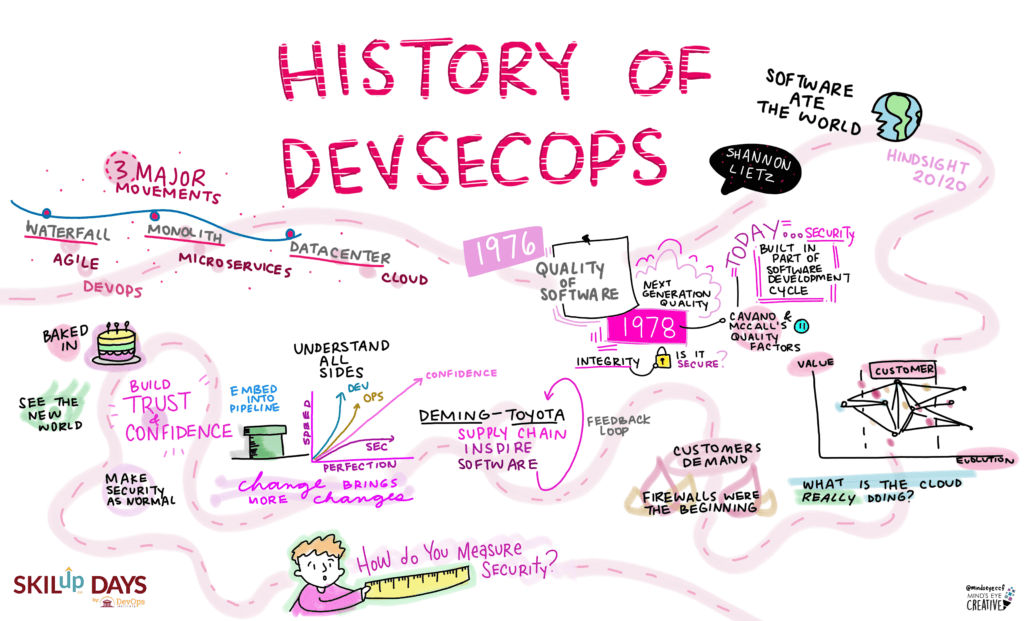 HISTORY OF
DEVSECOPS
SOFTWARE
ATE
THE WORLD
SHANNON
LIETZ
HINDSIGHT
20/20
3 MAJOR
MOVEMENTS
WATERFALL
AGILE
DEVOPS
MONOLITH
MICROSERVICES
DATACENTER
CLOUD
1976
QUALITY
OF
SOFTWARE
NEXT
GENERATION
QUALITY
1978
CAVANO &
MCCALL'S
QUALITY
FACTORS
11
INTEGRITY
IS IT
SECURE?
TODAY=
...SECURITY
BUILT IN
PART OF
SOFTWARE
DEVELOPMENT
CYCLE
BAKED
IN
SEE THE
NEW
WORLD
BUILD
TRUST
&
CONFIDENCE
MAKE
SECURITY
AS NORMAL
EMBED
INTO
PIPELINE
UNDERSTAND
ALL
SIDES
SPEED
DEV
OPS
CONFIDENCE
SEC
PERFECTION
change BRINGS
MORE changes
DEMING-TOYOTA
SUPPLY CHAIN
INSPIRE
SOFTWARE
FEEDBACK
LOOP
CUSTOMERS
DEMAND
FIREWALLS WERE
THE BEGINNING
VALUE
CUSTOMER
EVOLUTION
WHAT IS THE CLOUD
REALLY DOING?
HOW do You MEASURE
SECURITY?
SKILup DAYS
BY DevOps
INSTITUTE
@mindseyeccf
MIND'S EYE
CREATIVE